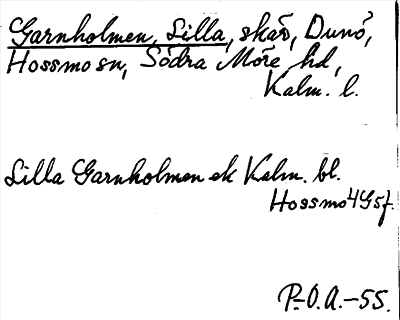 Garnholmen, Lilla, skär, Dunö,
Hossmo sn, Södra Möre hd,
Kalm. l.
Lilla Garnholmen ek Kalm. bl.
Hossmo 4G5f.
P.-O.A.-55.